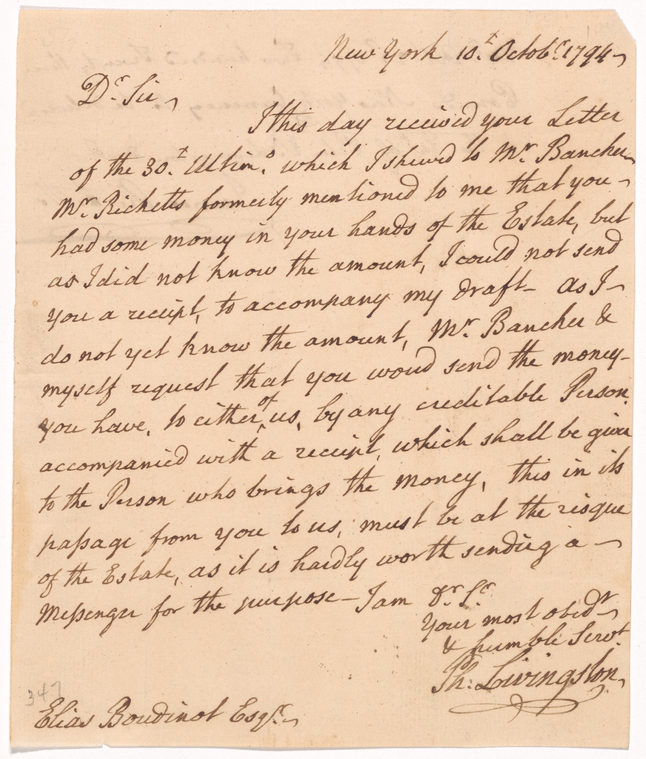 New York 10.t Octobr. 1794
Dr. Sir,
I this day received your Letter
of the 30.t Ultimo. which I shewed to Mr. Bancker
Mr. Ricketts formerly mentioned to me that you
had some money in your hands of the Estate, but
as I did not know the amount, I could not send
you a receipt, to accompany my draft - as I
do not yet know the amount, Mr. Bancker &
myself request that you woud send the money
you have, to either of us, by any creditable Person
accompanied with a receipt, which shall be given
to the Person who brings the money, this in its
passage from you to us, must be at the risque
of the Estate, as it is hardly worth sending a
Messenger for the purpose - I am Dr. Sr.
Your most obedt
& humble Servt.
Ph: Livingston
347
Elias Boudinot Esqr.